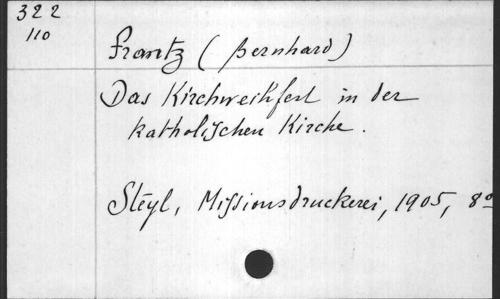 322
110
Frantz (Bernhard)
Das Kirchweihfest in der
katholischen Kirche.
Steyl, Missionsdruckerei, 1905, 8°